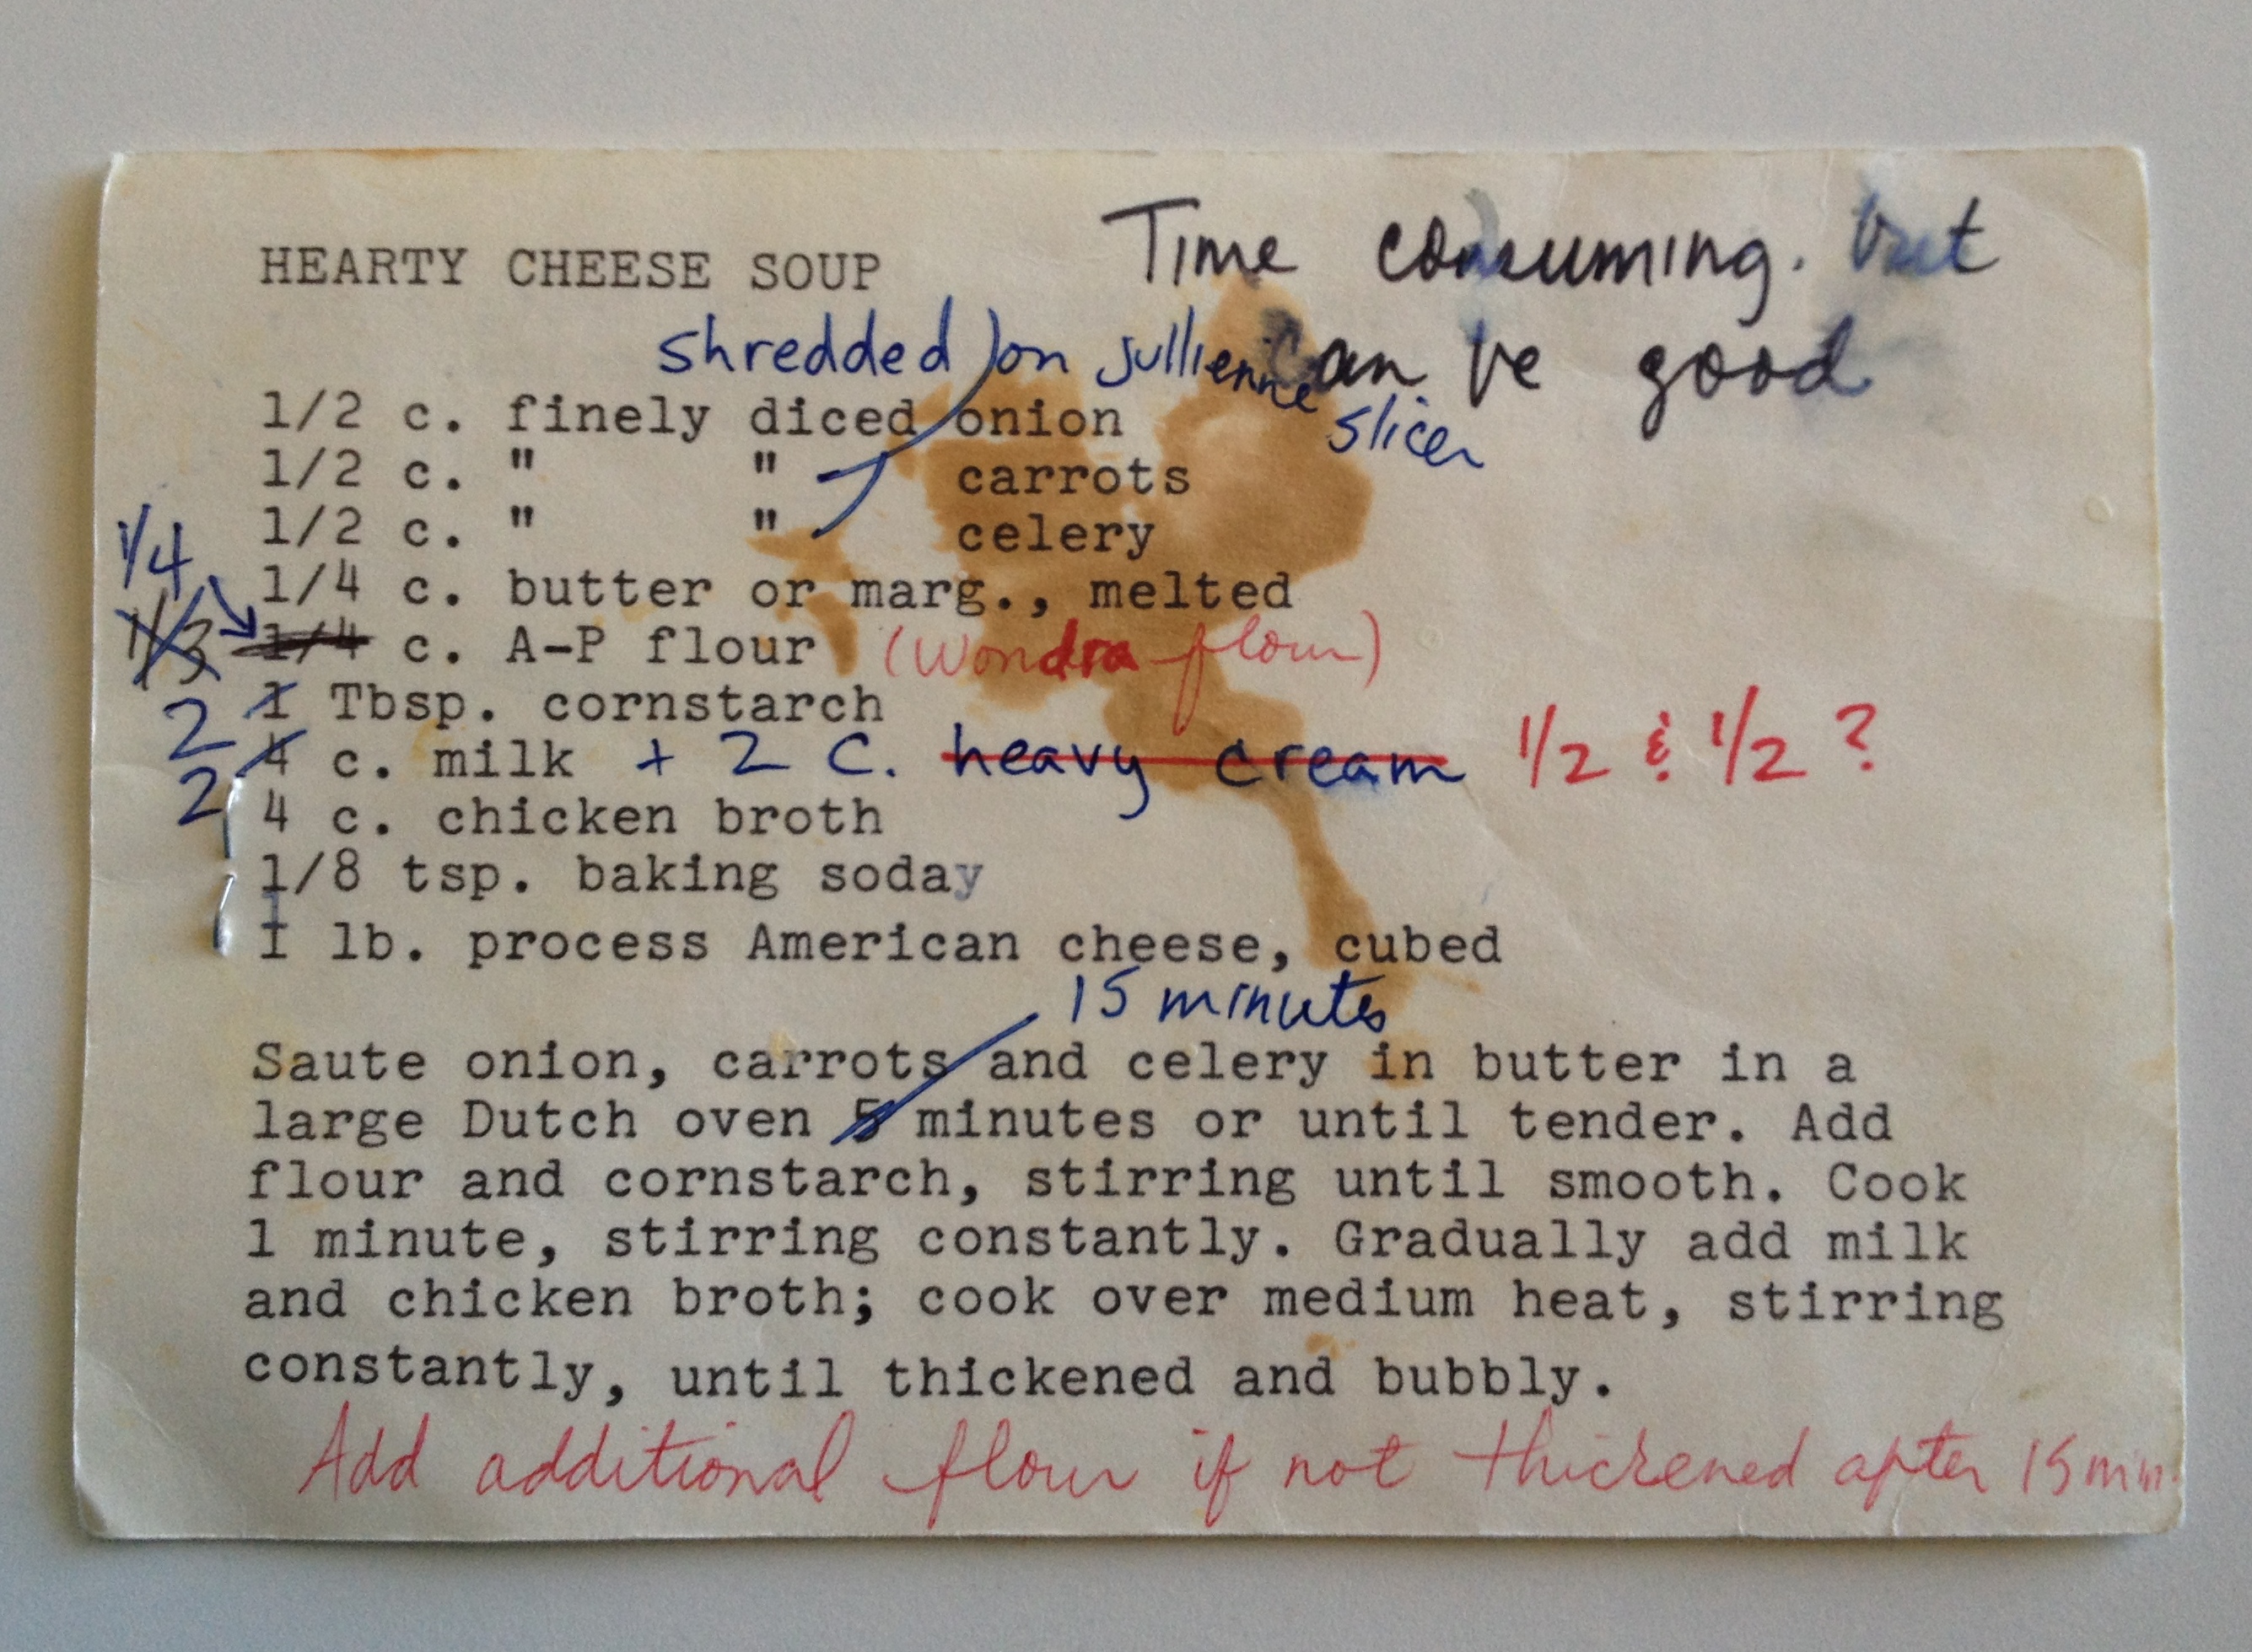 HEARTY CHEESE SOUP
Time consuming. but
can be good
shredded on jullienne
slicer
1/2 c. finely diced onion
1/2 c. " " carrots
1/2 c. " " celery
1/4
1/4 c. butter or marg., melted
1/3 1/4 c. A-P flour (Wondra flour)
2 1 Tbsp. cornstarch
2 4 c. milk + 2 c. heavy cream 1/2 & 1/2 ?
4 c. chicken broth
1/8 tsp. baking soday
1 lb. process American cheese, cubed
15 minutes
Saute onion, carrots and celery in butter in a
large Dutch oven 5 minutes or until tender. Add
flour and cornstarch, stirring until smooth. Cook
1 minute, stirring constantly. Gradually add milk
and chicken broth; cook over medium heat, stirring
constantly, until thickened and bubbly.
Add additional flour if not thickened after 15 min.